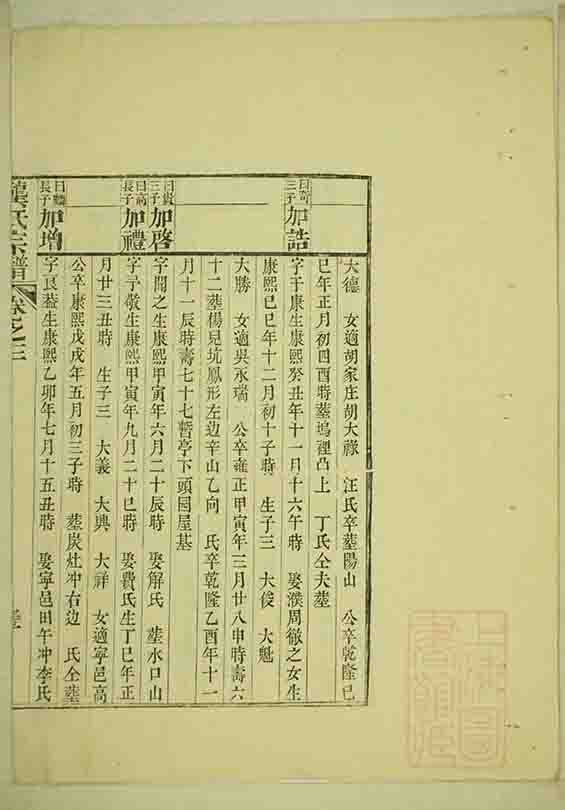 大德　女適胡家庄胡大祿　汪氏卒塟陽山　公卒乾隆已
巳年正月初四酉時塟塢裡凸上　丁氏仝夫塟
曰
三子
加誥
字于康生康熙癸丑年十一月十六午時　娶濮周徹之女生
康熙已巳年十二月初十子時　生子三　大俊　大魁
大勝　女適吳永瑞　公卒雍正甲寅年三月廿八申時壽六
十二塟楊見坑鳳形左边辛山乙向　氏卒乾隆乙酉年十一
月十一辰時壽七十七暫亭下頭園屋基
曰貴
三子
加啓
字開之生康熙甲寅年六月二十辰時　娶解氏　塟水口山
曰高
長子
加禮
字子敬生康熙甲寅年九月二十巳時　娶費氏生丁巳年正
月廿三丑時　生子三　大義　大興　大祥　女適寧邑高
公卒康熙戊戌年五月初三子時　塟炭灶冲右边　氏仝塟
曰
長子
加增
字良益生康熙乙卯年七月十五丑時　娶寧邑田午冲李氏
龔氏宗譜
卷之三